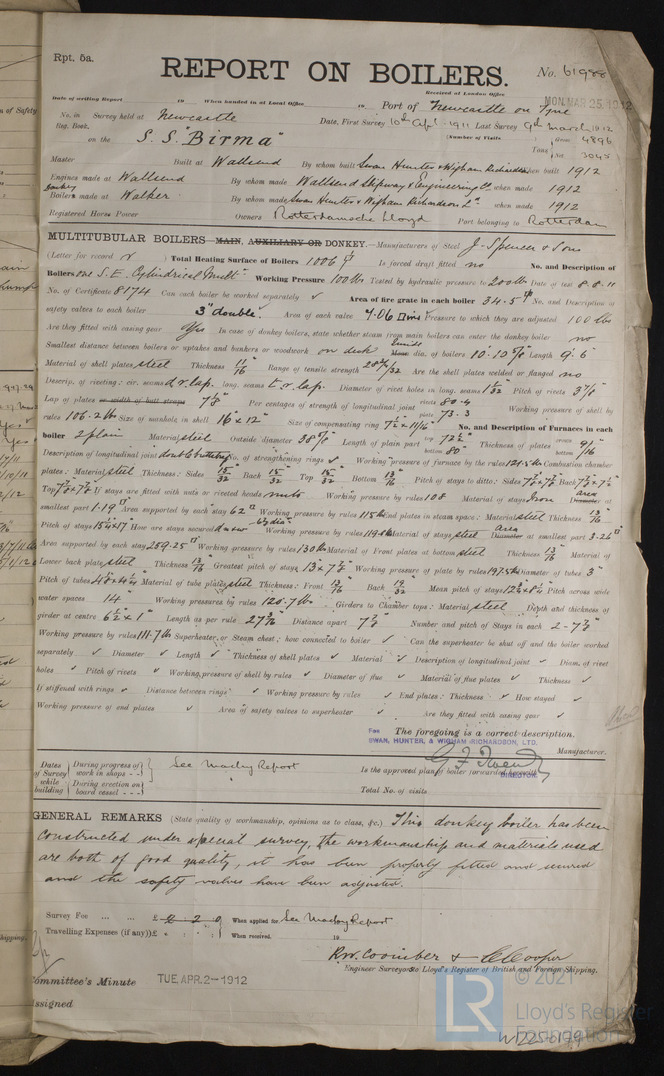 Rpt. 5a.
REPORT ON BOILERS.
No. 61988
Received at London Office
MON. MAR 25 1912
Date of writing Report 19 When handed in at Local Office 19 Port of Newcastle on Tyne
No. in Survey held at Newcastle Date, First Survey 10th Apl. 1911 Last Survey 9th March 1912
Reg. Book.
(Number of Visits
on the S.S. "Birma" Gross 4896
Tons Net 3045
Master Built at Wallsend By whom built Swan Hunter & Wigham Richardson When built 1912
Engines made at Wallsend By whom made Wallsend Slipway & Engineering Co when made 1912
Donkey Boilers made at Walker By whom made Swan Hunter & Wigham Richardson Ld when made 1912
Registered Horse Power Owners Rotterdamsche Lloyd Port belonging to Rotterdam
MULTITUBULAR BOILERS MAIN, AUXILIARY OR DONKEY.—Manufacturers of Steel J. Spencer & Sons
(Letter for record r) Total Heating Surface of Boilers 1006 Is forced draft fitted no No. and Description of
Boilers one S.E. Cylindrical Mult. Working Pressure 100 lbs Tested by hydraulic pressure to 200 lbs Date of test 8.8.11
No. of Certificate 8174 Can each boiler be worked separately ✓ Area of fire grate in each boiler 34.5 No. and Description of
safety valves to each boiler 3" double Area of each valve 7.06 Pressure to which they are adjusted 100 lbs
Are they fitted with easing gear Yes In case of donkey boilers, state whether steam from main boilers can enter the donkey boiler no
Smallest distance between boilers or uptakes and bunkers or woodwork on deck Inside dia. of boilers 10-10 5/8 Length 9'6
Material of shell plates steel Thickness 11/16 Range of tensile strength 28/32 Are the shell plates welded or flanged no
Descrip. of riveting: cir. seams d.r. lap. long. seams t.r. lap. Diameter of rivet holes in long. seams 1 1/32 Pitch of rivets 3 7/8
Lap of plates or width of butt straps 7 1/8" Per centages of strength of longitudinal joint rivets 80.4 plate 73.3 Working pressure of shell by
rules 106.2 lbs Size of manhole in shell 16" x 12" Size of compensating ring 7 1/2 x 11/16" No. and Description of Furnaces in each
boiler 2 plain Material steel Outside diameter 38 5/8" Length of plain part top 72 1/2" bottom 80" Thickness of plates crown 9/16 bottom
Description of longitudinal joint No. of strengthening rings ✓ Working pressure of furnace by the rules 121.5 lbs Combustion chamber
plates: Material steel Thickness: Sides 15/32 Back 15/32 Top 15/32 Bottom 13/16 Pitch of stays to ditto: Sides Back
Top If stays are fitted with nuts or riveted heads nuts Working pressure by rules 108 Material of stays Iron Area Diameter at
smallest part 1.19 Area supported by each stay 62 Working pressure by rules 115 lbs End plates in steam space: Material steel Thickness 13/16
Pitch of stays 15 1/4 x 17" How are stays secured Working pressure by rules 119.6 lbs Material of stays steel Area Diameter at smallest part 3.26
Area supported by each stay 259.25 Working pressure by rules 130 lbs Material of Front plates at bottom steel Thickness 13/16 Material of
Lower back plate steel Thickness 13/16 Greatest pitch of stays 13 x 7 1/2 Working pressure of plate by rules 197.5 lbs Diameter of tubes 3"
Pitch of tubes Material of tube plates steel Thickness: Front 13/16 Back 19/32 Mean pitch of stays Pitch across wide
water spaces 14" Working pressures by rules 120.7 lbs Girders to Chamber tops: Material steel Depth and thickness of
girder at centre 6 1/2 x 1" Length as per rule 27 Distance apart 7 Number and pitch of Stays in each 2 - 7
Working pressure by rules 111.7 lbs Superheater, or Steam chest; how connected to boiler ✓ Can the superheater be shut off and the boiler worked
separately ✓ Diameter ✓ Length ✓ Thickness of shell plates ✓ Material ✓ Description of longitudinal joint ✓ Diam. of rivet
holes ✓ Pitch of rivets ✓ Working pressure of shell by rules ✓ Diameter of flue ✓ Material of flue plates ✓ Thickness ✓
If stiffened with rings ✓ Distance between rings ✓ Working pressure by rules ✓ End plates: Thickness ✓ How stayed ✓
Working pressure of end plates ✓ Area of safety valves to superheater ✓ Are they fitted with easing gear ✓
The foregoing is a correct description.
FOR SWAN, HUNTER, & WIGHAM RICHARDSON, LTD.
Manufacturer.
DIRECTOR.
Dates of Survey while building During progress of work in shops - - During erection on board vessel - - - See Machy Report
Is the approved plan of boiler forwarded herewith
Total No. of visits
GENERAL REMARKS (State quality of workmanship, opinions as to class, &c.) This donkey boiler has been
constructed under special survey, the workmanship and materials used
are both of good quality, it has been properly fitted and secured
and the safety valves have been adjusted.
Survey Fee ... ... £ 2 2 0 When applied for See Machy Report
Travelling Expenses (if any) £ : : When received, 19
R.W. Coomber & C Cooper
Engineer Surveyors to Lloyd's Register of British and Foreign Shipping.
Committee's Minute TUE. APR. 2-1912
Assigned
© 2021
LR
Lloyd's Register
Foundation
W1225-0199